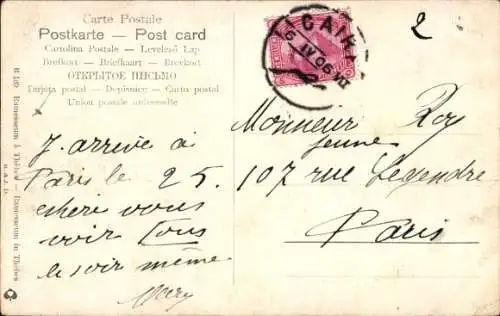 Carte Postale
Postkarte — Post card
Cartolina Postale — Levelező Lap
Brefkort — Briefkaart — Brevkort
ОТКРЫТОЕ ПИСЬМО
Tarjeta postal — Dopisnice — Carto postal
Union postale universelle
R 149 Ramesseum à Thèbes — Ramesseum in Theben
CAIR
IV 06
2
J'arrive à
Paris le 25.
chère vous
voir tous
le soir même
Mary
Monsieur Roy
jeune
107 rue Legendre
Paris